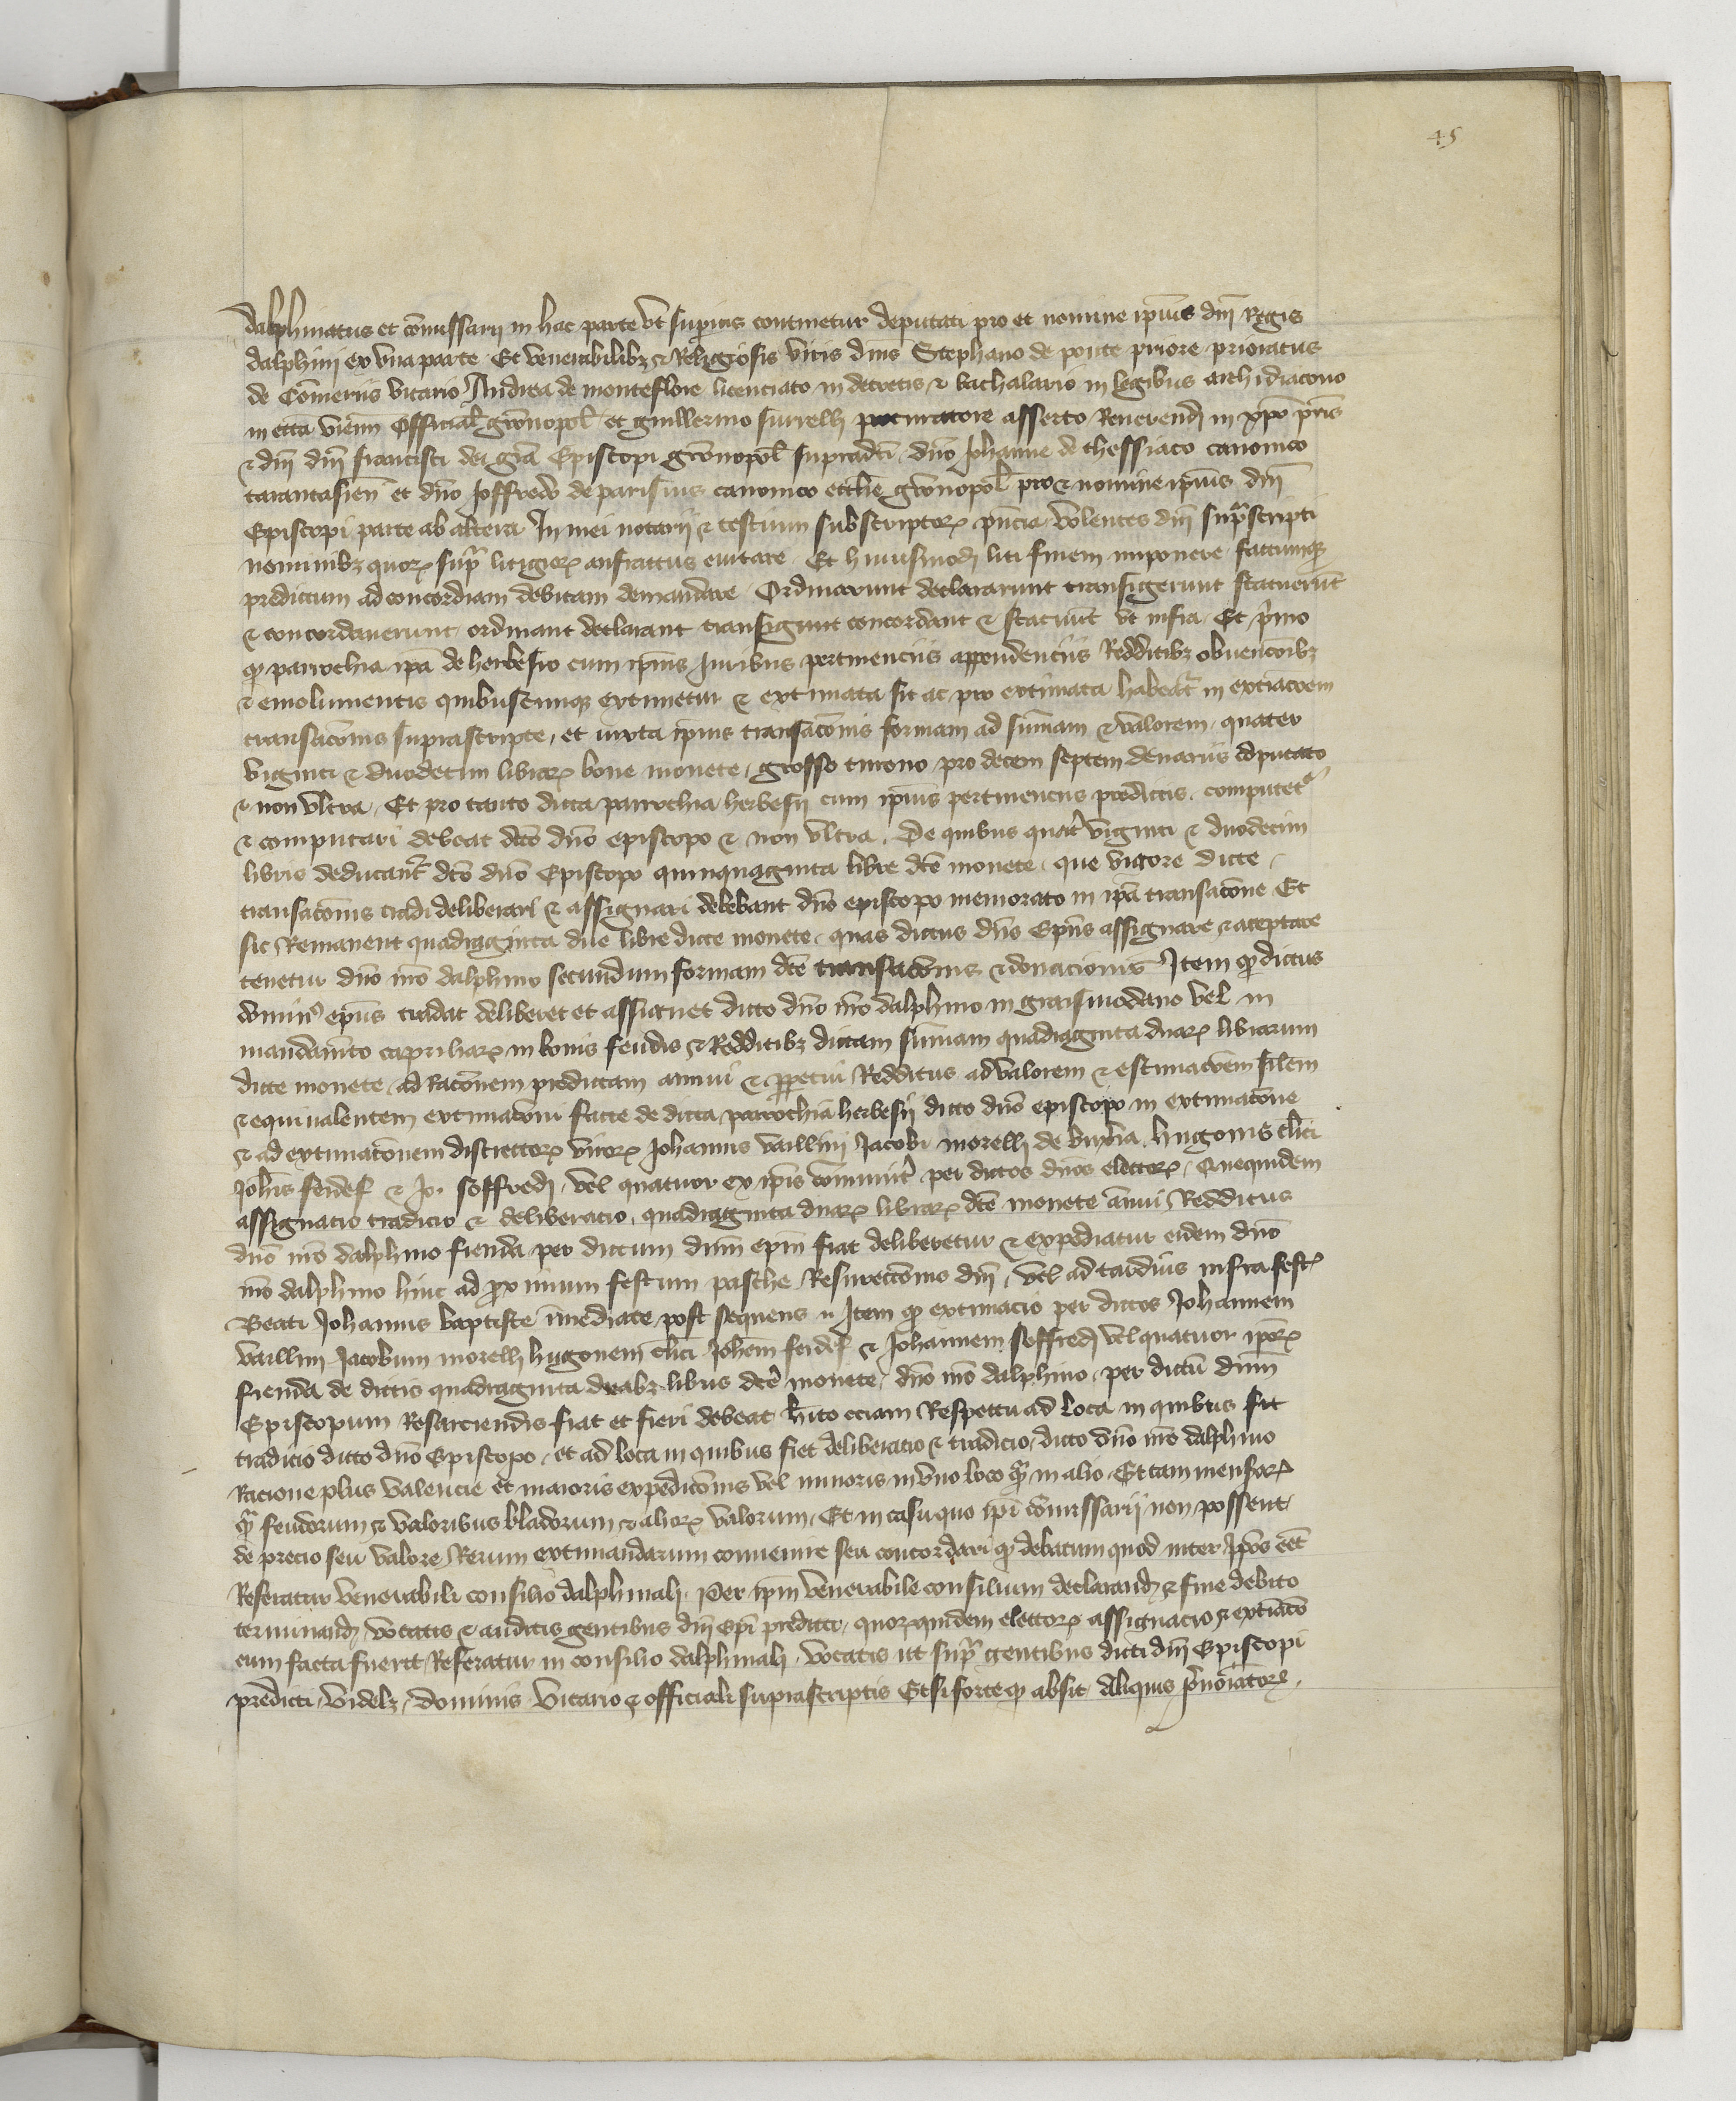 45
dalphinatus et cōmissarii in hac parte vt superius continetur deputati pro et nomine ipīus dnī Regis
dalphini ex vna parte Et venerabilibz & Religiosis viris dnīs Stephano de ponte priore prioratus
de Cōmeriis vicario Andrea de monteflore licenciato in decretis & bachalario in legibus archidiacono
in ecca vienn Official gronopol et guillermo surrelli procuratore asserto Reverendi in xpō pris
& dnī dnī francisci dei gra Episcopi gronopol supradcti dnō Johanne de thessiaco canonico
tarantasien et dnō Joffredo de parisius canonico ecche gronopol pro & nomine ipīus dnī
Episcopi parte ab altera In mei notarii & testium subscriptorꝝ pncia Volentes dnī suprascripti
nominibz quorꝝ supra litigiorꝝ anfractus euitare Et huiusmodi liti finem imponere factumqꝫ
predictum ad concordiam debitam demandare Ordinarunt declararunt transigerunt statuerunt
& concordauerunt ordinant declarant transigunt concordant & statuunt vt infra Et primo
qꝫ parrochia ipā de herbesio cum ipīus Juribus pertinenciis appendenciis Redditibz obuencōibz
& emolumentis quibuscumqꝫ extimetur & extimata sit ac pro extimata habeatr in extiacōem
transacōnis suprascripte, et iuxta ipius transacōnis formam ad sūmam & valorem quater
viginti & duodecim librarꝝ bone monete grosso turono pro decem septem denariis cōputato
& non vltra, Et pro tanto dicta parrochia herbesii cum ipīus pertinenciis predictis computetr
& computari debeat dctō dnō episcopo & non vltra. De quibus quatr viginti & duodecim
libris deducantr dctō dnō Episcopo quinquaginta libre dctē monete que vigore dicte
transacōnis tradi deliberari & assignari debebant dnō episcopo memorato in ipā transacōne Et
sic Remanent quadraginta due libre dicte monete quas dictus dnīs Epūs assignare & aceptare
tenetur dnō nrō dalphino secundum formam dctē transacōnis & donacionis Item qꝫ dictus
dominꝰ epūs tradat deliberet et assituet dicto dnō nrō dalphino in graisiuodano vel in
mandamēto capriliarꝝ in bonis feudis & Redditibz dictam sūmam quadraginta duarꝝ librarum
dicte monete ad Racōnem predictam annui & perpetui Redditus ad valorem & estimacōem silem
& equiualentem extimacōni facte de dicta parrochia herbesii dicto dnō episcopo in extimacōne
& ad extimacōnem discrectorꝝ virorꝝ Johannis vaillini Jacobi morelli de buxia hugonis clici
Johis feudef & Jo. soffredi vel quatuor ex ipis cōmunitr per dictos dnōs electorꝝ, Quequidem
assignatio tradicio & deliberacio, quadraginta duarꝝ librarꝝ dctē monete annui Redditus
dnō nrō dalphino fienda per dictum dnm epm fiat deliberetur & expediatur eidem dnō
nrō dalphino hinc ad proximum festum pasche Resurectōnis dnī, vel ad tardius infra festꝝ
Beati Johannis baptiste imediate post sequens Item qꝫ extimacio per dictos Johannem
vaillini Jacobum morelli hugonem clici Johem feudef & Johannem soffredi vel quatuor iporꝝ
fienda de dictis quadraginta duabz libris dctē monete dnō nrō dalphino per dictū dnm
Episcopum Resarciendis fiat et fieri debeat hito eciam Respectu ad loca in quibus fit
tradicio dicto dnō Episcopo et ad loca in quibus fiet deliberacio & tradicio dicto dnō nrō dalphino
Racione plus valencie et maioris expedicōnis vel minoris in vno loco quā in alio Et tam mensorꝝ
quā feudorum & valoribus bladorum & aliorꝝ valorum, Et in casu quo ipi cōmissarii non possent
de precio seu valore Rerum extimandarum conuenire seu concordari qꝫ debatum quod inter ipos eēt
Referatur venerabili consilio dalphinali Per ipm venerabile consilium declarandi & fine debito
terminandi vocatis & auditis gentibus dnī Epi predicti quorꝝ quidem electorꝝ assignacio & extiacō
cum facta fuerit Referatur in consilio dalphinali vocatis ut supra gentibus dicti dnī Episcopi
predicti videlz dominis vicario & officiali suprascriptis Et si forte qꝫ absit Aliquis prenoiatorꝝ